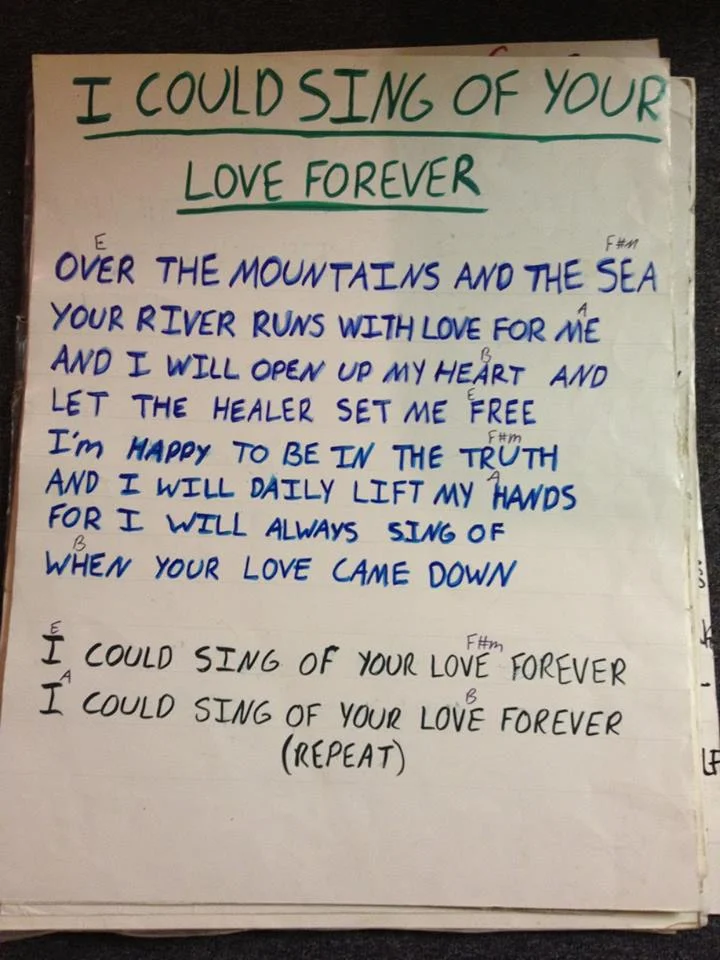 I COULD SING OF YOUR
LOVE FOREVER
E F#m
OVER THE MOUNTAINS AND THE SEA
A
YOUR RIVER RUNS WITH LOVE FOR ME
B
AND I WILL OPEN UP MY HEART AND
E
LET THE HEALER SET ME FREE
F#m
I'm HAPPY TO BE IN THE TRUTH
A
AND I WILL DAILY LIFT MY HANDS
FOR I WILL ALWAYS SING OF
B
WHEN YOUR LOVE CAME DOWN
E F#m
I COULD SING OF YOUR LOVE FOREVER
A B
I COULD SING OF YOUR LOVE FOREVER
(REPEAT)